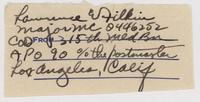 Lawrence E Filkin
Major MC 0446252
Co D FROM 315th Med Bn
APO 90 c/o the postmaster
Los Angeles, Calif